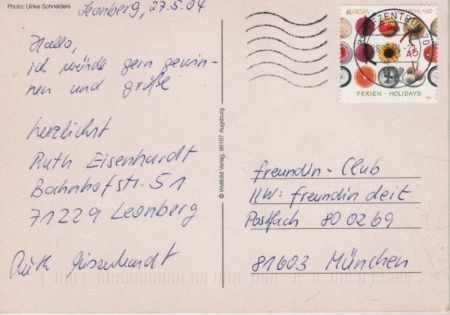 Photo: Ulrike Schneiders
Leonberg, 27.5.04
Hallo,
ich würde gern gewin-
nen und grüße
herzlichst
Ruth Eisenhardt
Bahnhofstr. 51
71229 Leonberg
Ruth Eisenhardt
© Weltbild Verlag, 86167 Augsburg
EUROPA DEUTSCHLAND
BRIEFZENTRUM 70
45
FERIEN - HOLIDAYS
freundin-Club
KW: freundin deit
Postfach 80 02 69
81603 München